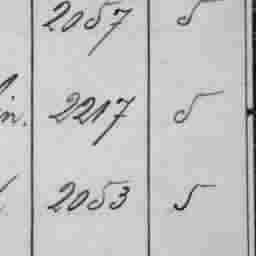 2057 5
in. 2217 5
2053 5